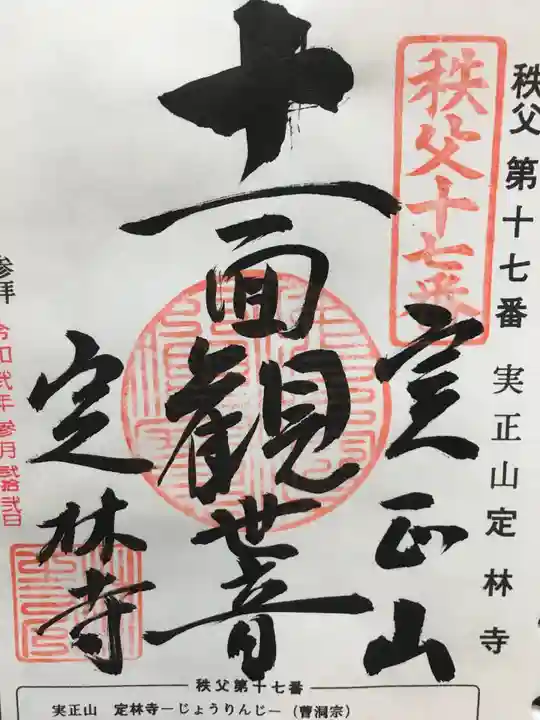 秩父 第十七番 実正山定林寺
秩父十七番
実正山
十一面観世音
定林寺
参拝
令和弐年参月弐拾弐日
秩父第十七番
実正山 定林寺ーじょうりんじー（曹洞宗）